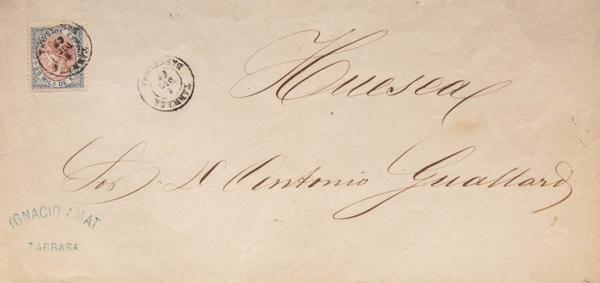 TARRASA
BARCELONA
Huesca
Sor. D. Antonio Guallard
IGNACIO AMAT
TARRASA